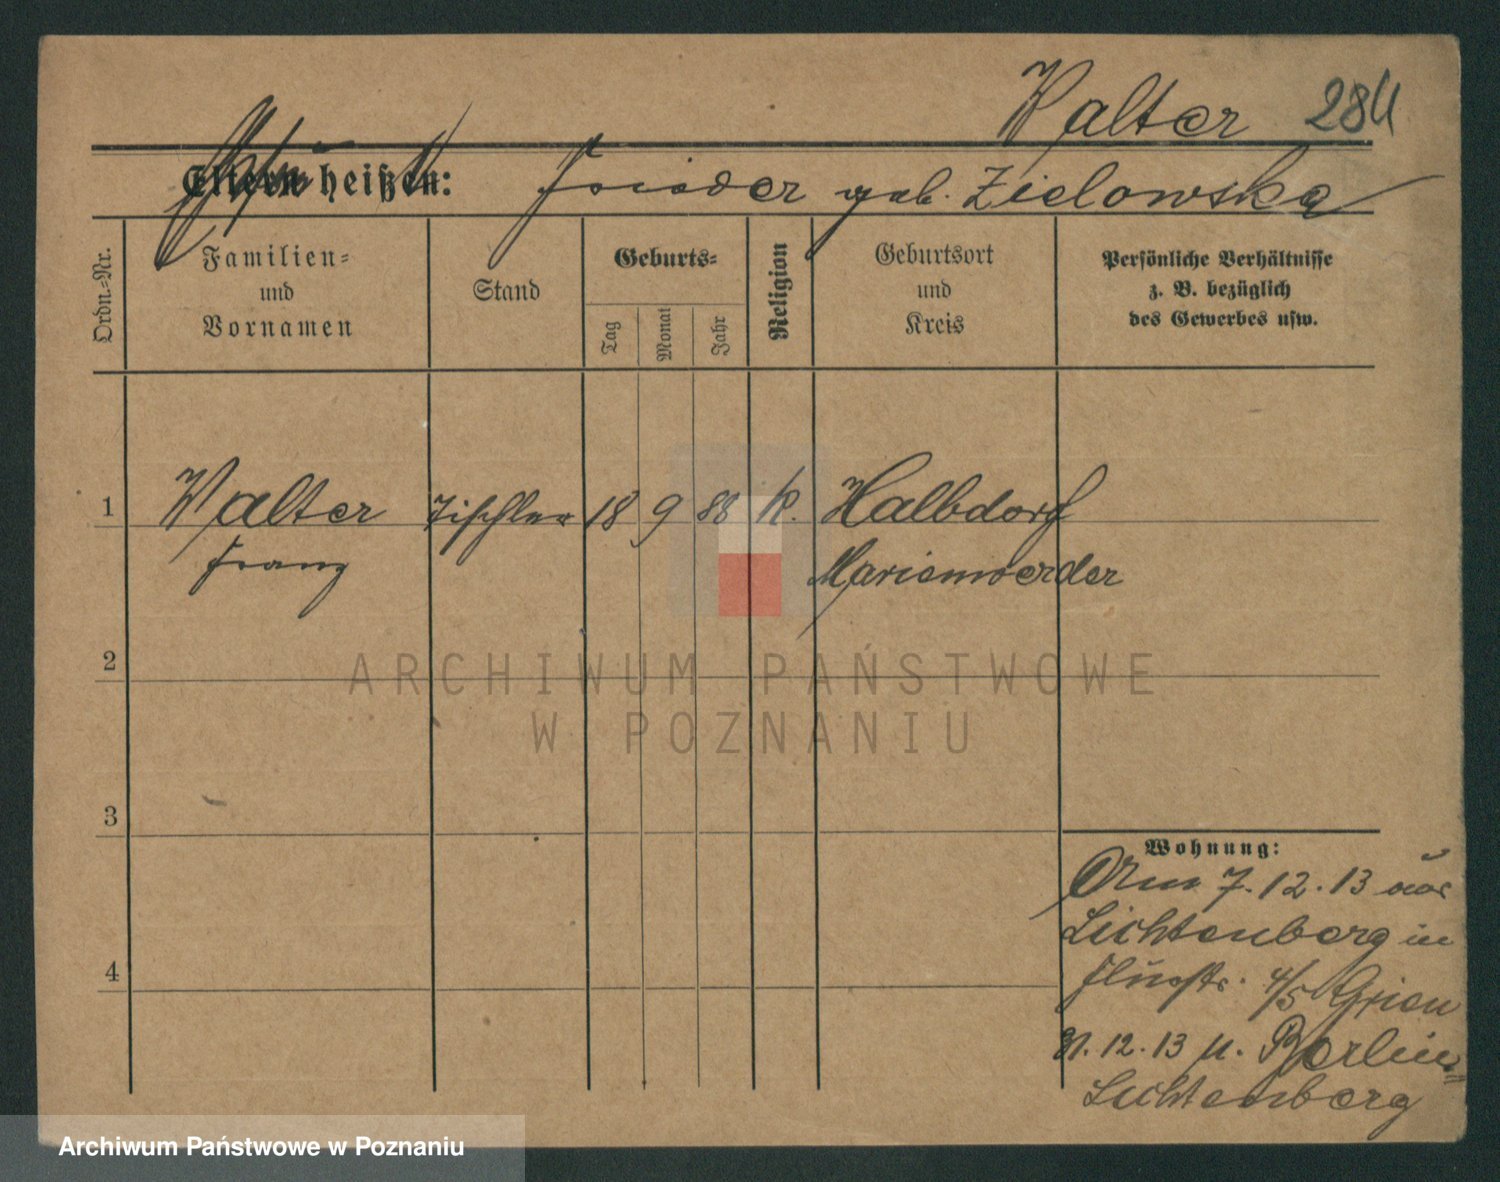 Walter 284
Eltern heißen: geb. Zielowska
Ordn.-Nr.
Familien-
und
Vornamen
Stand
Geburts-
Tag
Monat
Jahr
Religion
Geburtsort
und
Kreis
Persönliche Verhältnisse
z. B. bezüglich
des Gewerbes usw.
1 Walter Tischler 18 9 88 k. Halbdorf
Franz Marienwerder
2
ARCHIWUM PAŃSTWOWE
W POZNANIU
3
Wohnung:
Am 7.12.13 aus
Lichtenberg in
4/5
4
31.12.13 n. Berlin-
Lichtenberg
Archiwum Państwowe w Poznaniu